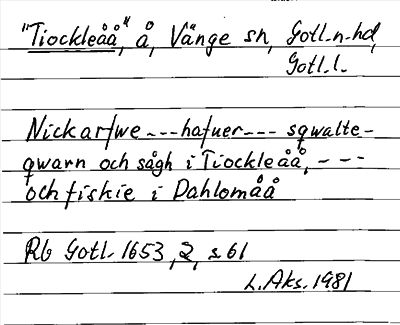 "Tiockleåå", å, Vänge sn, Gotl. n. hd,
Gotl. l.
Nickarfwe ---hafuer--- sqwalte-
qwarn och sågh i Tiockleåå, ---
och fiskie i Dahlomåå
Rb Gotl. 1653, 2, s. 61
L. Aks. 1981